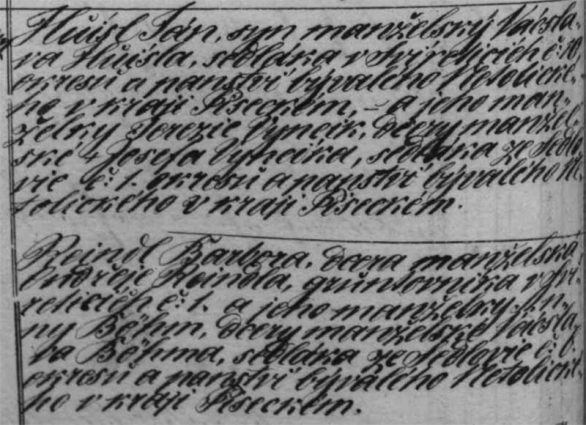 Hůisl Jan, syn manželský Václa-
va Hůisla, sedláka v Tvírolicích č.
okresu a panství bývalého Netolické-
ho v kraji Píseckém, – a jeho man-
želky Terezie Vyncik, dcery manžel-
ské Josefa Vyncika, sedláka ze Sedlo-
vic č. 1. okresu a panství bývalého Ne-
tolického v kraji Píseckém.
Reindl Barbora, dcera manželská
Ondřeje Reindla, gruntovníka v
reticích č. 1. a jeho manželky An-
ny Böhm, dcery manželské Václa-
va Böhma, sedláka ze Sedlovic č. 6.
okresu a panství bývalého Netolické-
ho v kraji Píseckém.